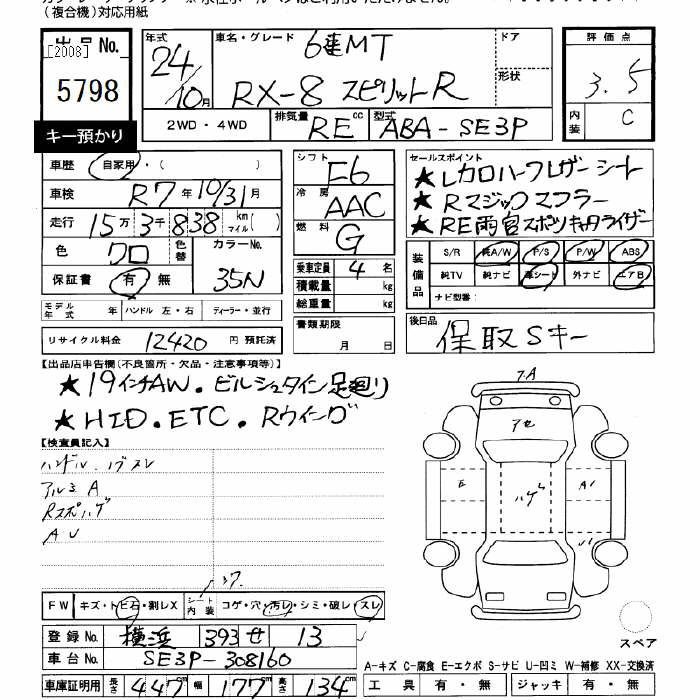 (複合機)対応用紙
出品No.
[2008]
5798
キー預かり
年式 24/10月
車名・グレード 6速MT
RX-8 スピリットR
ドア
形状
評価点
3.5
内装 C
2WD・4WD 排気量 RE cc 型式 ABA-SE3P
車歴 自家用・( )
車検 R7年10/31月
走行 15万3千838 km マイル( )
色 クロ 色替 カラーNo. 35N
保証書 有・無
モデル年式 年 ハンドル 左・右 ディーラー・並行
リサイクル料金 12420 円 預託済
シフト F6
冷房 AAC
燃料 G
乗車定員 4 名
積載量 kg
総重量 kg
書類期限
月 日
セールスポイント
★レカロハーフレザーシート
★Rマジックマフラー
★RE雨宮スポーツキャタライザー
装備品
S/R 純A/W P/S P/W ABS
純TV 純ナビ 革シート 外ナビ エアB
ナビ型番:
後日品
保取Sキー
【出品店申告欄(不良箇所・欠品・注意事項等)】
★19インチAW.ビルシュタイン足廻り
★HID.ETC.Rウイング
【検査員記入】
ハンドル.ノブスレ
アルミA
Rスポハゲ
AU
7.A
アセ
E
ハゲ
A1
FW キズ・トビ石・割レX シート内装 コゲ・穴・汚レ・シミ・破レ・スレ
登録No. 横浜 393 せ 13
車台No. SE3P-308160
車庫証明用 長さ 447cm 幅 177cm 高さ 134cm
スペア
A-キズ C-腐食 E-エクボ S-サビ U-凹ミ W-補修 XX-交換済
工具 有・無 ジャッキ 有・無